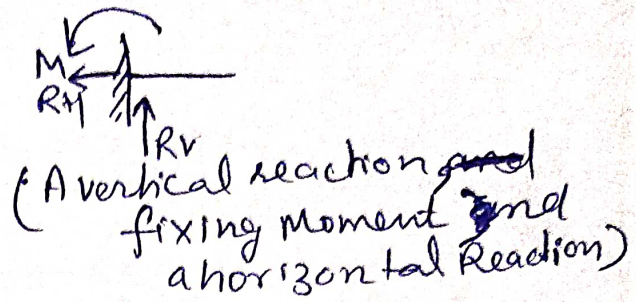 M
RH
RV
(A vertical reaction,
fixing Moment and
a horizontal Reaction)